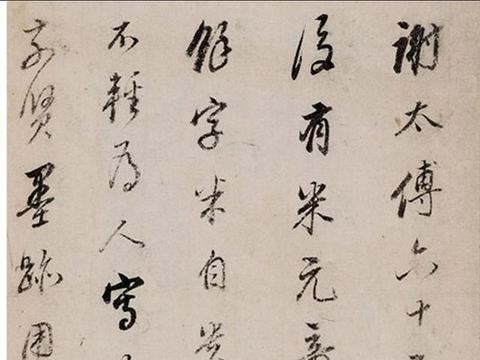 謝太傅六十
後有米元章
餘字米自貴
不輕為人寫
前賢墨跡用